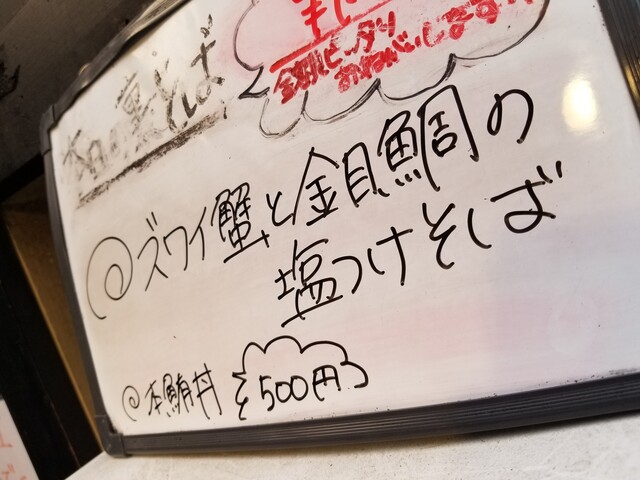 本日の裏そば
金額ピッタリ
おねがいします!!
@ズワイ蟹と金目鯛の
塩つけそば
@本鮪丼 500円